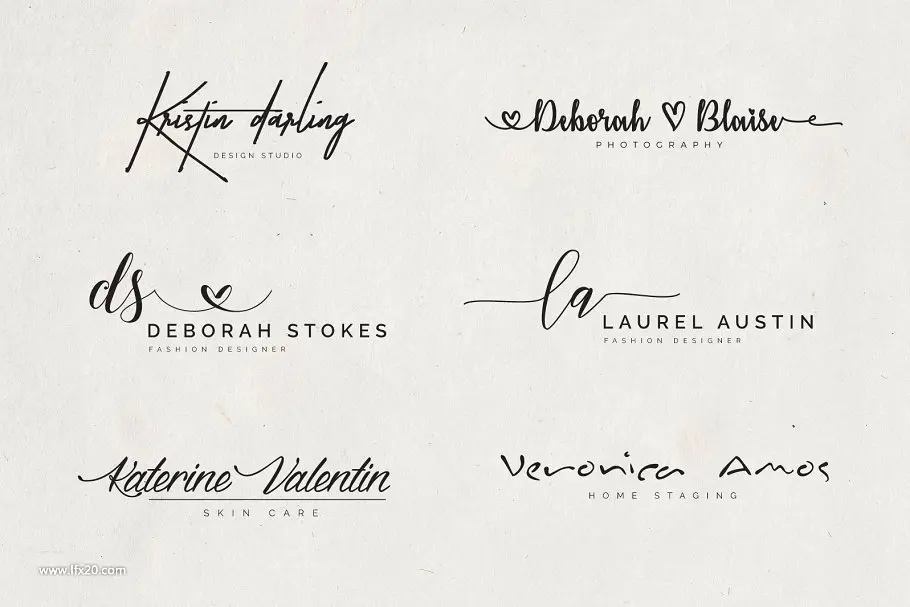 Kristin darling
DESIGN STUDIO
Deborah ♡ Blaise
PHOTOGRAPHY
ds
DEBORAH STOKES
FASHION DESIGNER
la
LAUREL AUSTIN
FASHION DESIGNER
Katerine Valentin
SKIN CARE
Veronica Amos
HOME STAGING
www.lfx20.com